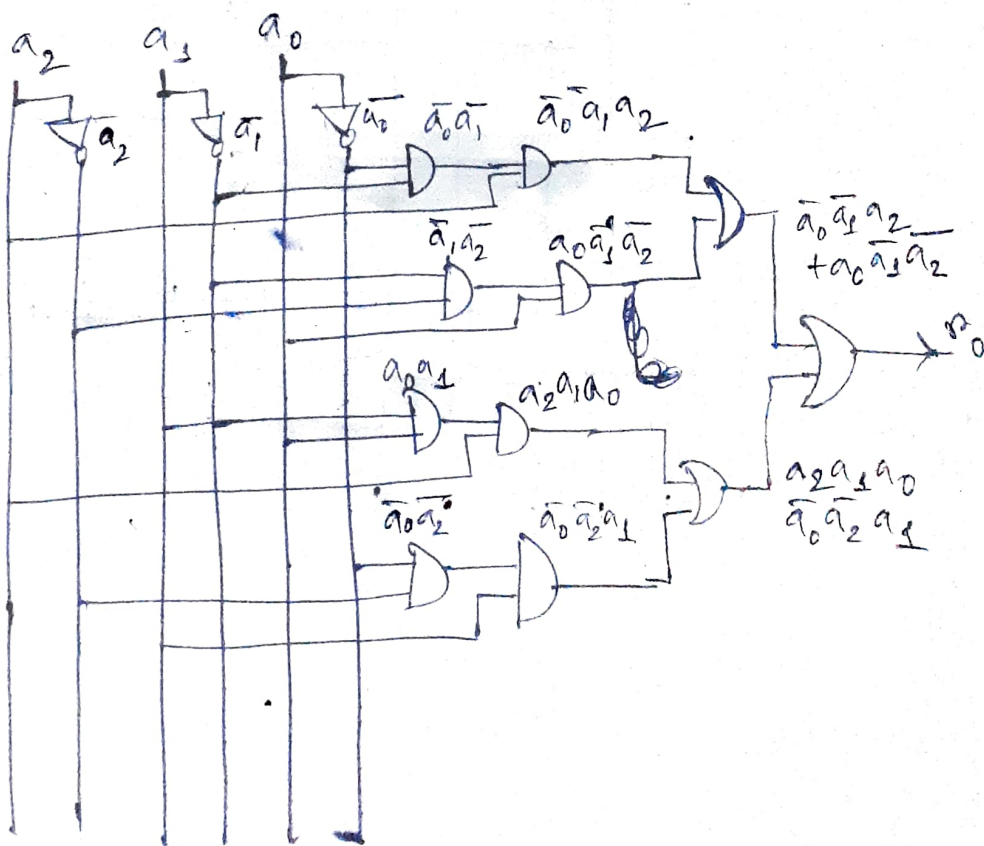 a₂ a₁ a₀
a̅₂ a̅₁ a̅₀
a̅₀a̅₁ a̅₀a̅₁a₂
a̅₁a̅₂ a₀a̅₁a̅₂
a̅₀a̅₁a₂
+a₀a̅₁a̅₂
r₀
a₀a₁ a₂a₁a₀
a̅₀a̅₂ a̅₀a̅₂a₁
a₂a₁a₀
a̅₀a̅₂a₁